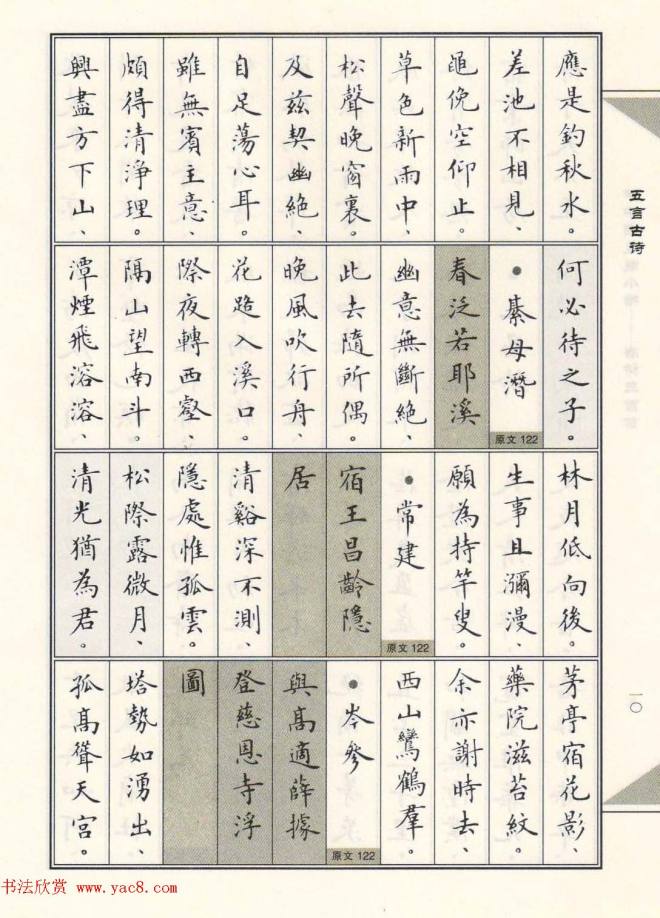 應是釣秋水。
差池不相見、
黽俛空仰止。
草色新雨中、
松聲晚窗裏。
及茲契幽絕、
自足蕩心耳。
雖無賓主意、
頗得清淨理。
興盡方下山、
何必待之子。
●綦母潛
原文 122
春泛若耶溪
幽意無斷絕、
此去隨所偶。
晚風吹行舟、
花路入溪口。
際夜轉西壑、
隔山望南斗。
潭煙飛溶溶、
林月低向後。
生事且瀰漫、
願為持竿叟。
●常建
原文 122
宿王昌齡隱
居
清谿深不測、
隱處惟孤雲。
松際露微月、
清光猶為君。
茅亭宿花影、
藥院滋苔紋。
余亦謝時去、
西山鸞鶴羣。
●岑參
原文 122
與高適薛據
登慈恩寺浮
圖
塔勢如湧出、
孤高聳天宮。
五言古诗
一〇
书法欣赏 www.yac8.com